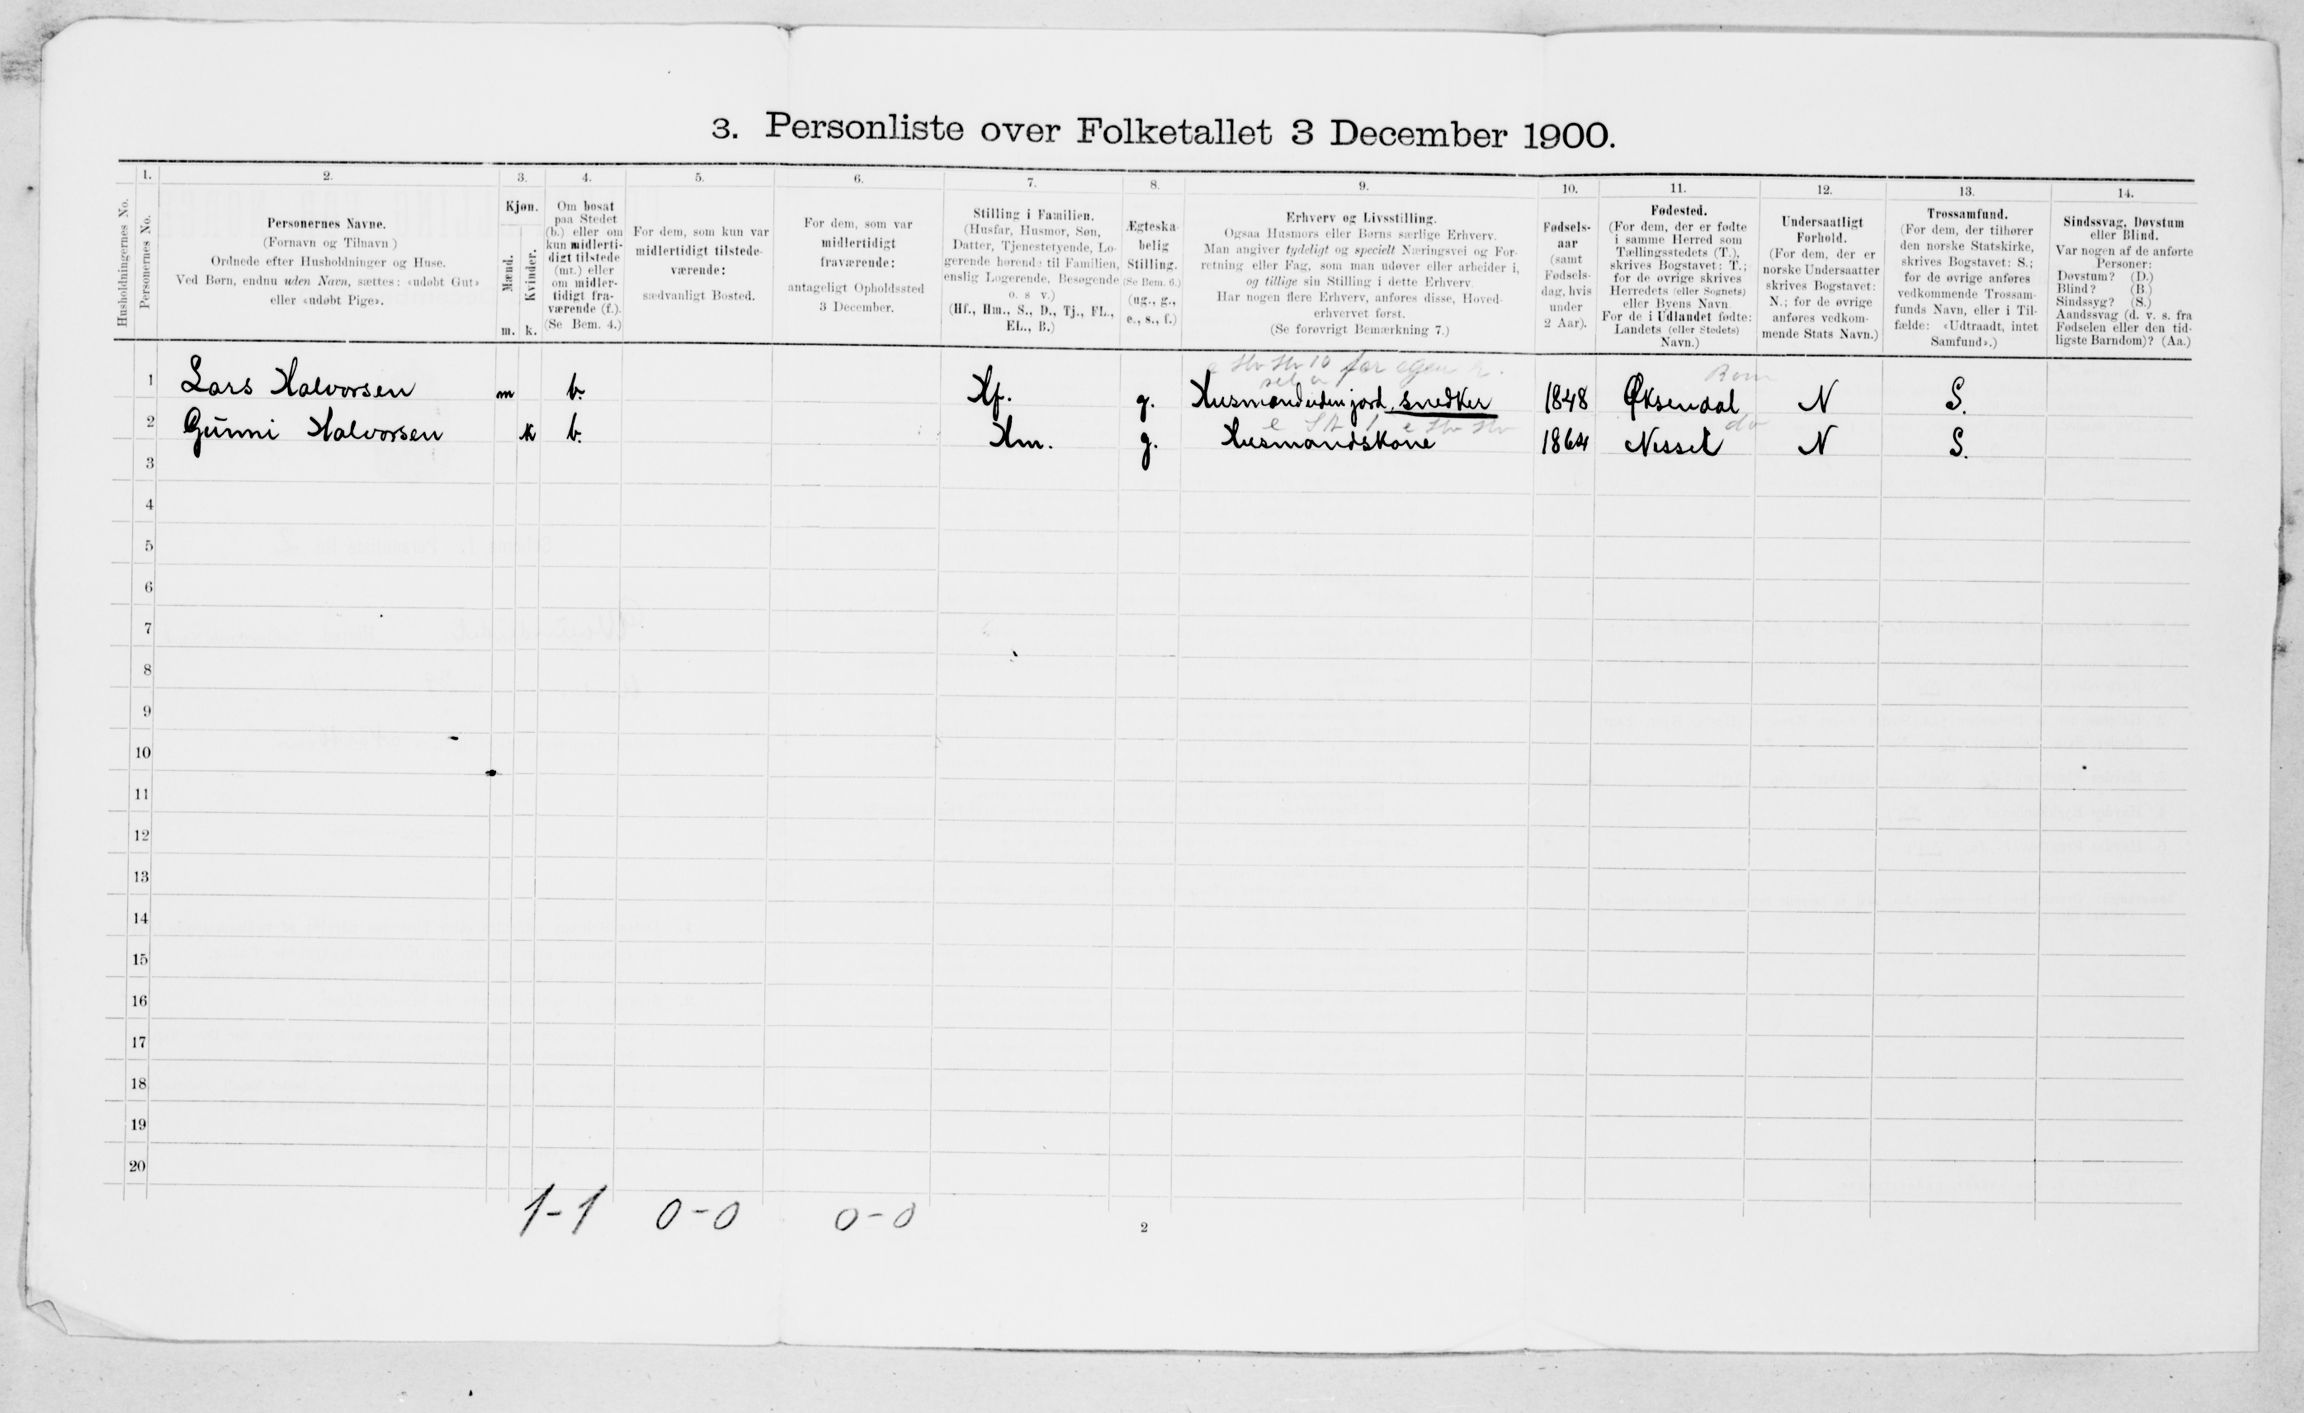 3. Personliste over Folketallet 3 December 1900.
1. 2. 3. 4. 5. 6. 7. 8. 9. 10. 11. 12. 13. 14.
Husholdningernes No.
Personernes No.
Personernes Navne.
(Fornavn og Tilnavn)
Ordnede efter Husholdninger og Huse.
Ved Børn, endnu uden Navn, sættes: «udøbt Gut»
eller «udøbt Pige».
Kjøn.
Mænd.
Kvinder.
m. k.
Om bosat
paa Stedet
(b.) eller om
kun midlerti-
digt tilstede
(mt.) eller
om midler-
tidigt fra-
værende (f.).
(Se Bem. 4.)
For dem, som kun var
midlertidigt tilstede-
værende:
sædvanligt Bosted.
For dem, som var
midlertidigt
fraværende:
antageligt Opholdssted
3 December.
Stilling i Familien.
(Husfar, Husmor, Søn,
Datter, Tjenestetyende, Lo-
gerende hørende til Familien,
enslig Logerende, Besøgende
o. s v.)
(Hf., Hm., S., D., Tj., FL.,
EL., B.)
Ægteska-
belig
Stilling.
(Se Bem. 6.)
(ug., g.,
e., s., f.)
Erhverv og Livsstilling.
Ogsaa Husmors eller Børns særlige Erhverv.
Man angiver tydeligt og specielt Næringsvei og For-
retning eller Fag, som man udøver eller arbeider i,
og tillige sin Stilling i dette Erhverv.
Har nogen flere Erhverv, anføres disse, Hoved-
erhvervet først.
(Se forøvrigt Bemærkning 7.)
Fødsels-
aar
(samt
Fødsels-
dag, hvis
under
2 Aar).
Fødested.
(For dem, der er fødte
i samme Herred som
Tællingsstedets (T.),
skrives Bogstavet: T.;
for de øvrige skrives
Herredets (eller Sognets)
eller Byens Navn.
For de i Udlandet fødte:
Landets (eller Stedets)
Navn.)
Undersaatligt
Forhold.
(For dem, der er
norske Undersaatter
skrives Bogstavet:
N.; for de øvrige
anføres vedkom-
mende Stats Navn.)
Trossamfund.
(For dem, der tilhører
den norske Statskirke,
skrives Bogstavet: S.;
for de øvrige anføres
vedkommende Trossam-
funds Navn, eller i Til-
fælde: «Udtraadt, intet
Samfund».)
Sindssvag, Døvstum
eller Blind.
Var nogen af de anførte
Personer:
Døvstum? (D.)
Blind? (B.)
Sindssyg? (S.)
Aandssvag (d. v. s. fra
Fødselen eller den tid-
ligste Barndom)? (Aa.)
for egen
Rom
1 Lars Halvorsen m b. Hf. g. Husmand uden jord, snedker 1848 Øksendal N S.
do
2 Gunni Halvorsen k b. Hm. g. Husmandskone 1864 Nesset N S.
3
4
5
6
7
8
9
10
11
12
13
14
15
16
17
18
19
20
1-1 0-0 0-0
2